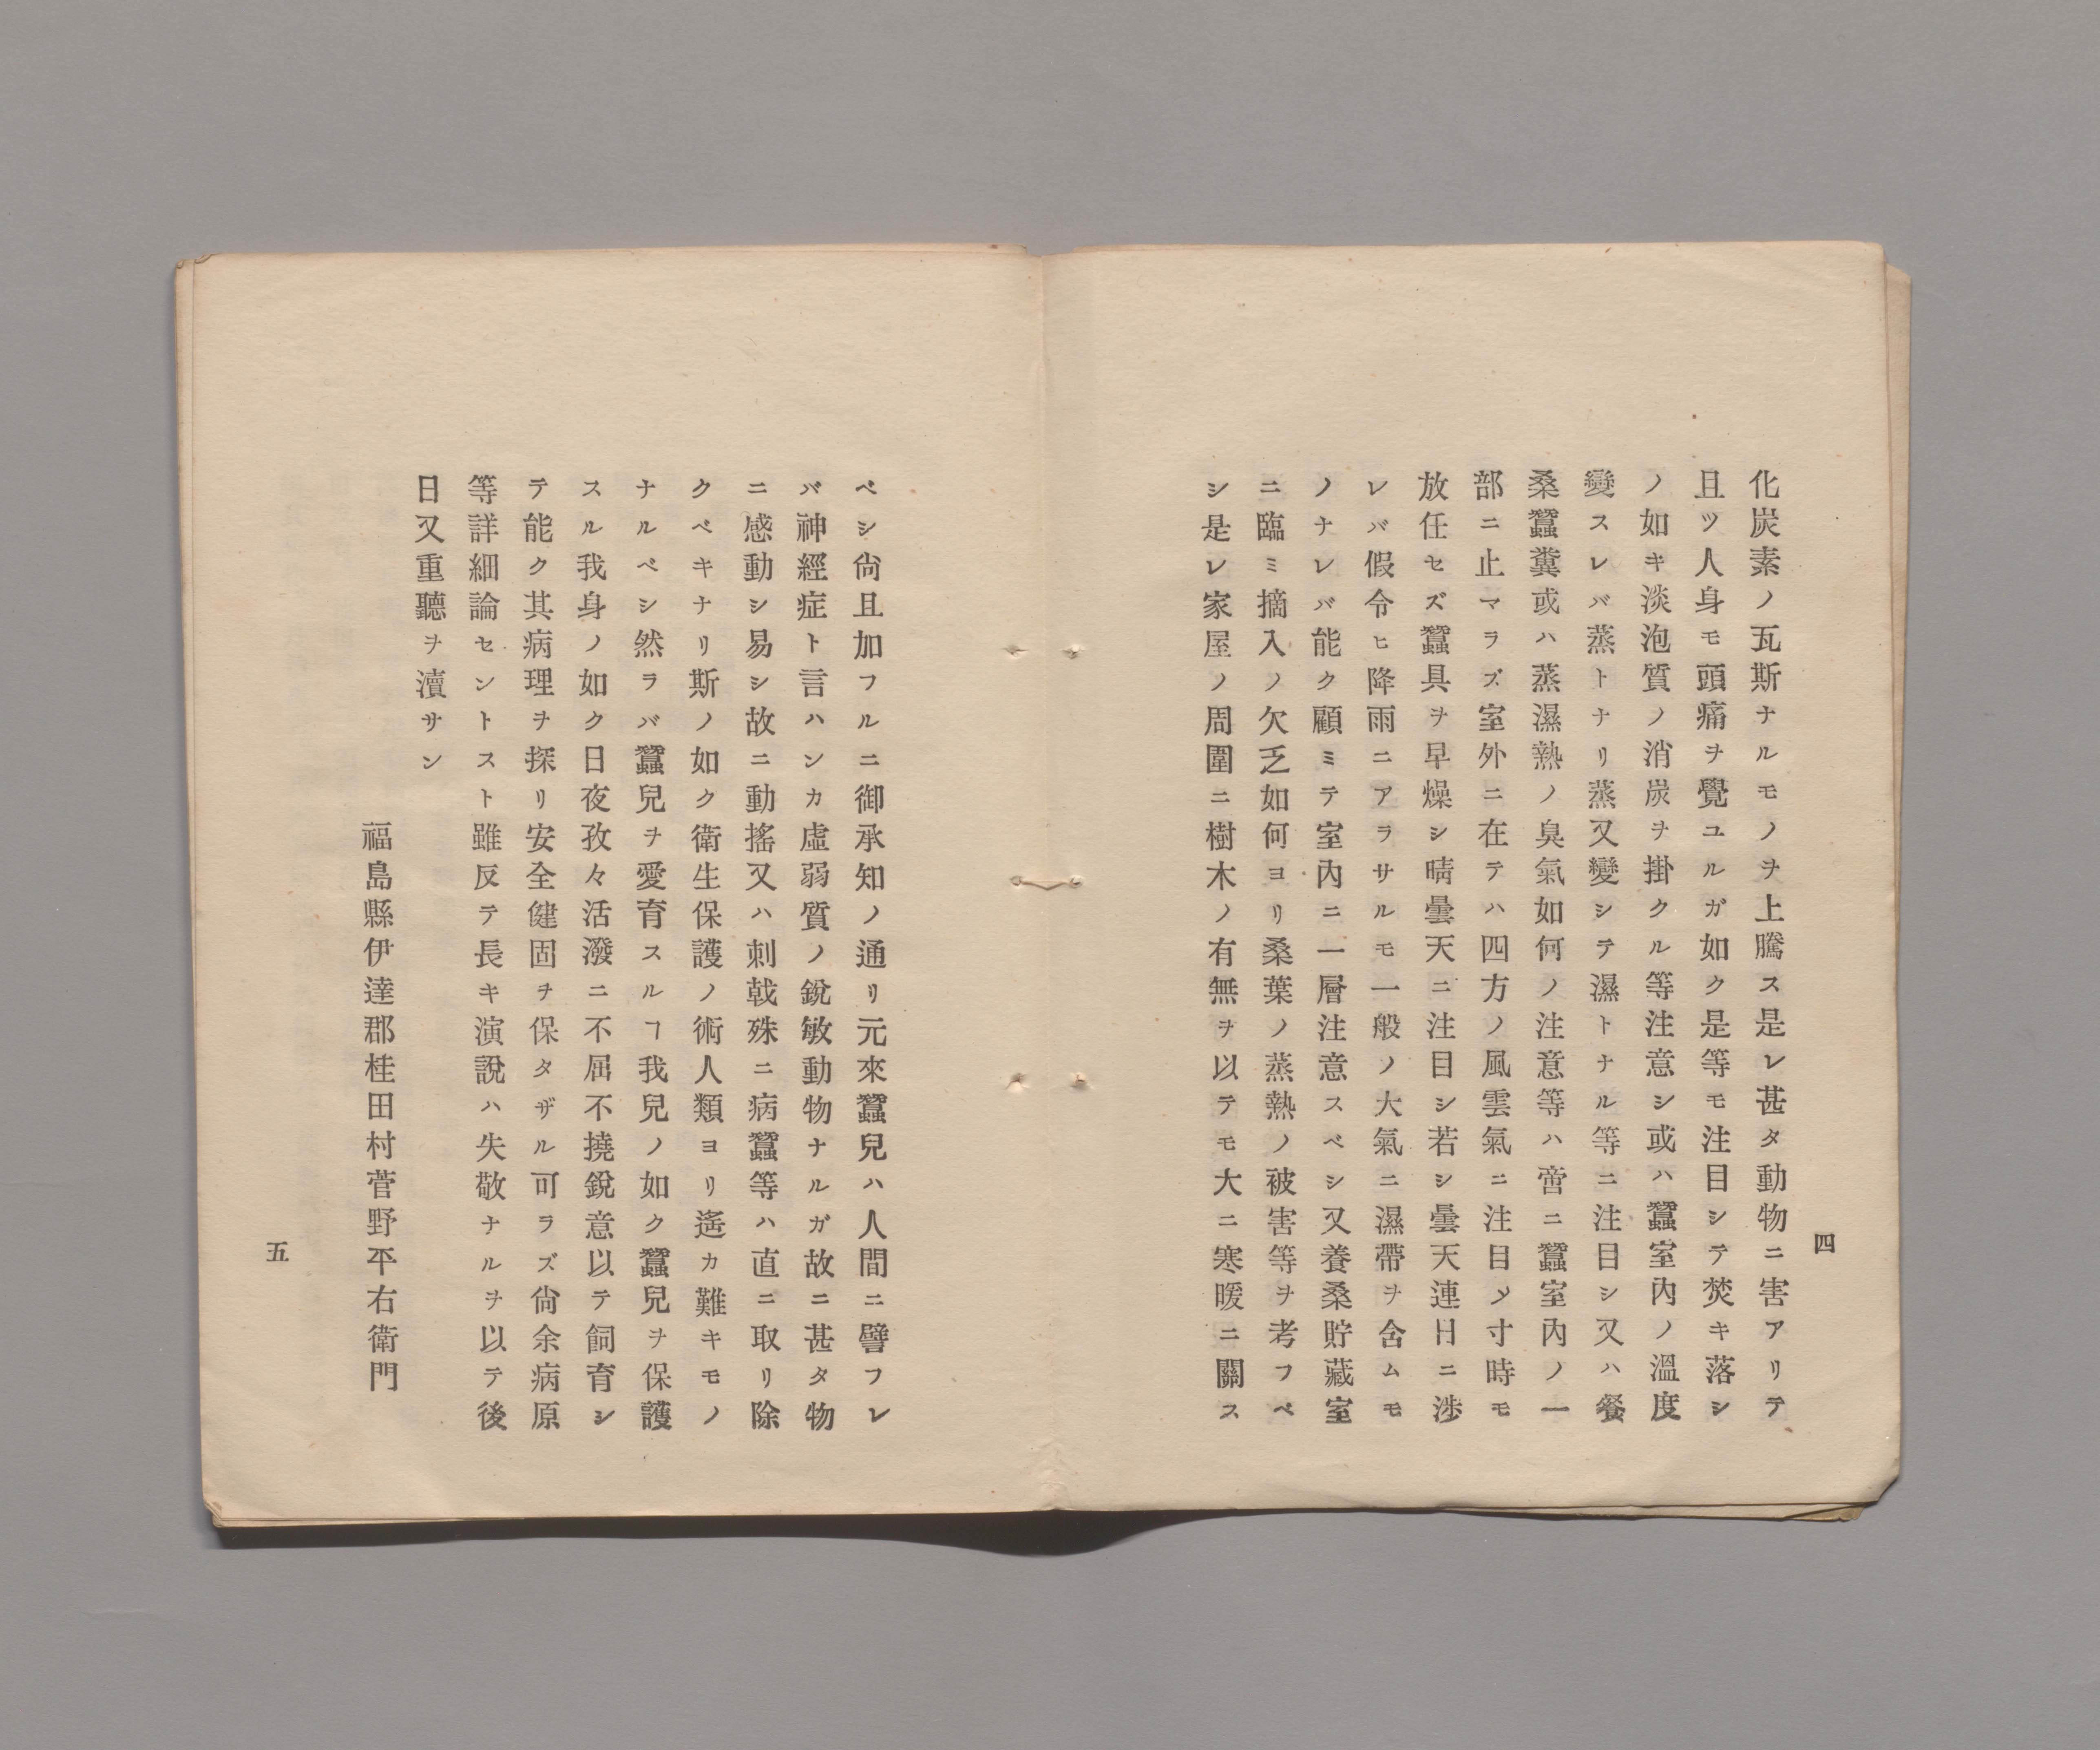 四
化炭素ノ瓦斯ナルモノヲ上騰ス是レ甚タ動物ニ害アリテ
且ツ人身モ頭痛ヲ覺ユルガ如ク是等モ注目シテ焚キ落シ
ノ如キ淡泡質ノ消炭ヲ掛クル等注意シ或ハ蠶室內ノ溫度
變スレバ蒸トナリ蒸又變シテ濕トナル等ニ注目シ又ハ餐
桑蠶糞或ハ蒸濕熱ノ臭氣如何ノ注意等ハ啻ニ蠶室內ノ一
部ニ止マラズ室外ニ在テハ四方ノ風雲氣ニ注目シ寸時モ
放任セズ蠶具ヲ早燥シ晴曇天ニ注目シ若シ曇天連日ニ涉
レバ假令ヒ降雨ニアラサルモ一般ノ大氣ニ濕帶ヲ含ムモ
ノナレバ能ク顧ミテ室內ニ一層注意スベシ又養桑貯藏室
ニ臨ミ摘入ノ欠乏如何ヨリ桑葉ノ蒸熱ノ被害等ヲ考フベ
シ是レ家屋ノ周圍ニ樹木ノ有無ヲ以テモ大ニ寒暖ニ關ス
ベシ尙且加フルニ御承知ノ通リ元來蠶兒ハ人間ニ譬フレ
バ神經症ト言ハンカ虛弱質ノ銳敏動物ナルガ故ニ甚タ物
ニ感動シ易シ故ニ動搖又ハ刺戟殊ニ病蠶等ハ直ニ取リ除
クベキナリ斯ノ如ク衛生保護ノ術人類ヨリ遙カ難キモノ
ナルベシ然ラバ蠶兒ヲ愛育スルヿ我兒ノ如ク蠶兒ヲ保護
スル我身ノ如ク日夜孜々活潑ニ不屈不撓銳意以テ飼育シ
テ能ク其病理ヲ探リ安全健固ヲ保タザル可ラズ尙余病原
等詳細論セントスト雖反テ長キ演說ハ失敬ナルヲ以テ後
日又重聽ヲ瀆サン
福島縣伊達郡桂田村菅野平右衛門
五